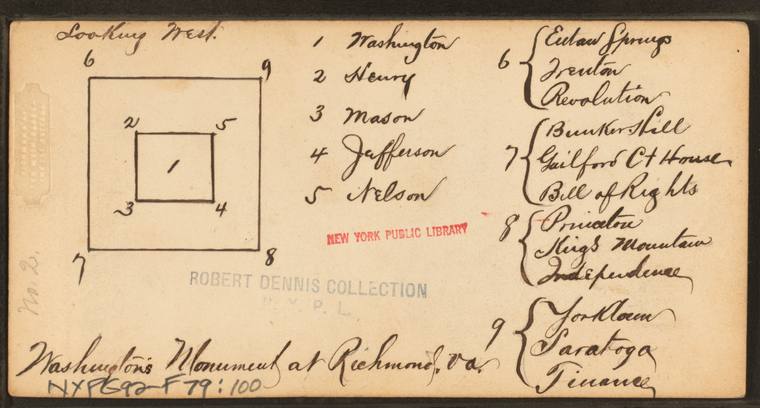 Looking West.
6 9
2 5
1
3 4
7 8
No. 2.
1 Washington
2 Henry
3 Mason
4 Jefferson
5 Nelson
6 { Eutaw Springs
Trenton
Revolution
7 { Bunkers Hill
Guilford Ct House
Bill of Rights
8 { Princeton
Kings Mountain
Independence
9 { Yorktown
Saratoga
Finance
NEW YORK PUBLIC LIBRARY
ROBERT DENNIS COLLECTION
N. Y. P. L.
Washington's Monument at Richmond, Va.
NYPG92-F79:100